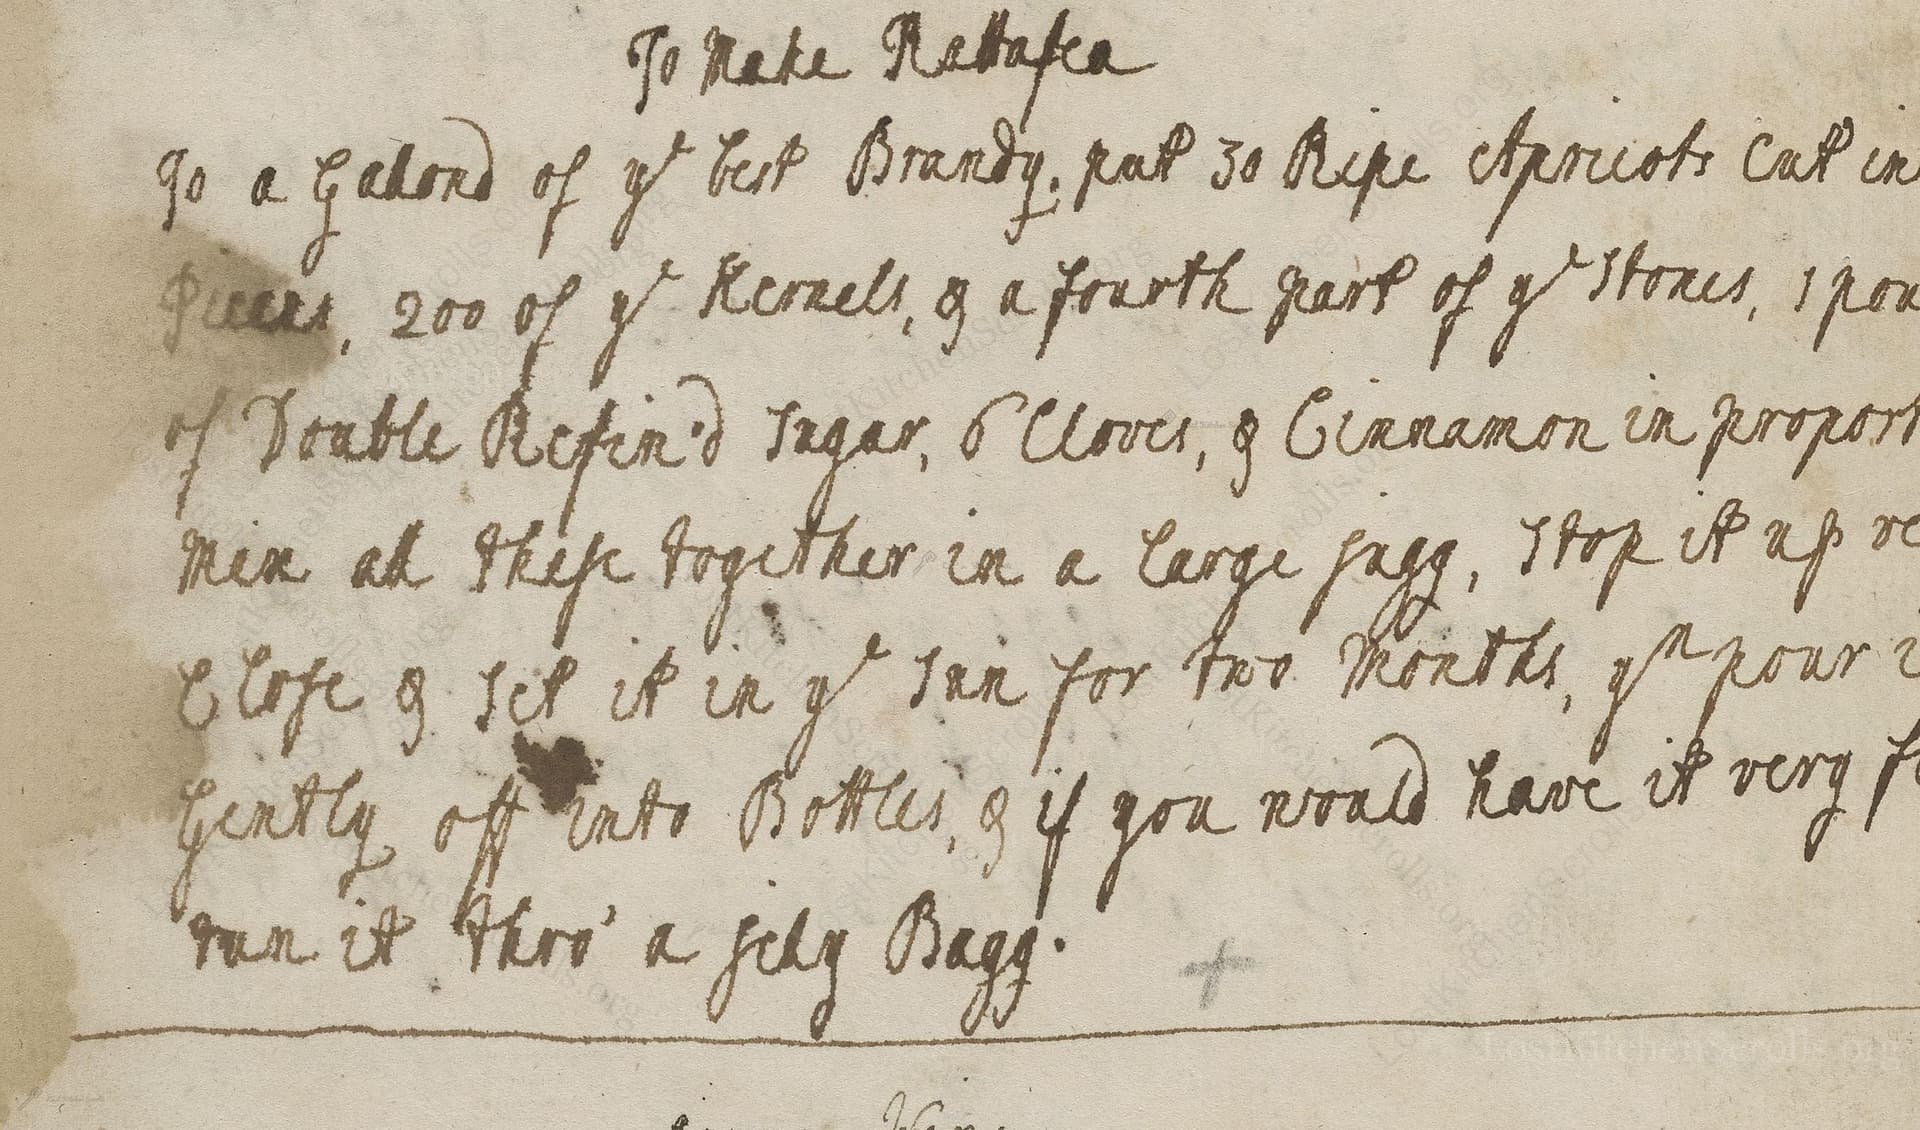 To Make Rattafea
To a Gallond of yr best Brandy. put 30 Ripe Apricots Cut in
Pieces, 200 of yr Kernels, & a fourth part of yr Stones, 1 pou
of Double Refin'd Sugar, 6 Cloves, & Cinnamon in proport
Mix all these together in a large jugg, Stop it up ve
Close & Set it in yr Sun for two Months, yn pour i
Gently off into Bottles, & if you would have it very f
run it thro' a jelly Bagg.
LostKitchenScrolls.org